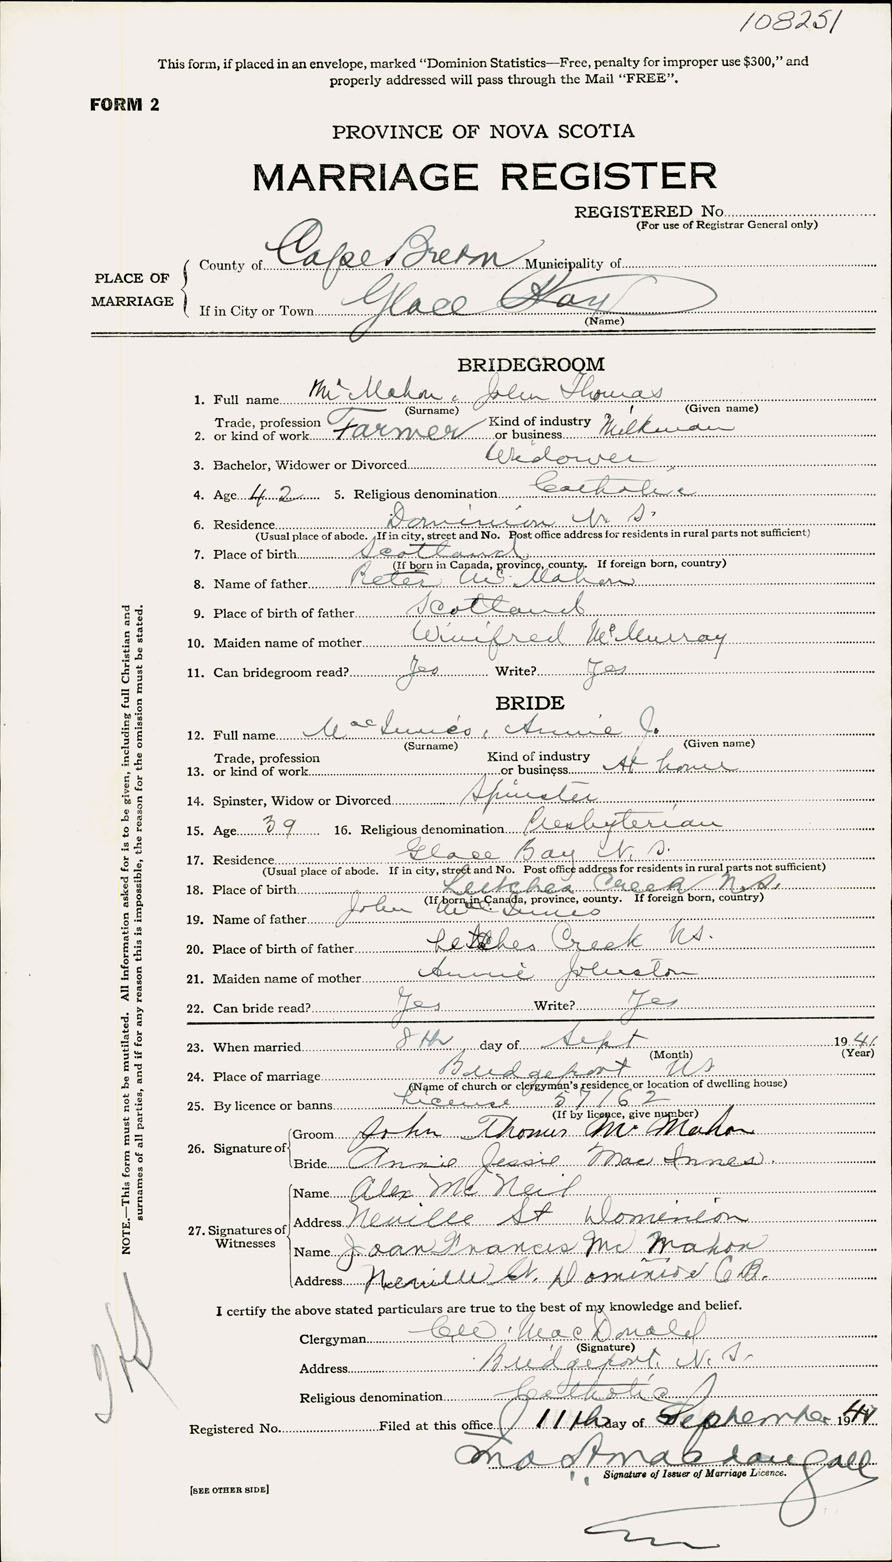 108251
This form, if placed in an envelope, marked “Dominion Statistics—Free, penalty for improper use $300,” and
properly addressed will pass through the Mail “FREE”.
FORM 2
PROVINCE OF NOVA SCOTIA
MARRIAGE REGISTER
REGISTERED No.
(For use of Registrar General only)
PLACE OF MARRIAGE
County of Cape Breton Municipality of
If in City or Town Glace Bay
(Name)
BRIDEGROOM
1. Full name McMahon, John Thomas
(Surname) (Given name)
2. Trade, profession or kind of work Farmer Kind of industry or business Milkman
3. Bachelor, Widower or Divorced Widower
4. Age 42 5. Religious denomination Catholic
6. Residence Dominion N. S.
(Usual place of abode. If in city, street and No. Post office address for residents in rural parts not sufficient)
7. Place of birth Scotland
(If born in Canada, province, county. If foreign born, country)
8. Name of father Peter McMahon
9. Place of birth of father Scotland
10. Maiden name of mother Winifred McMurray
11. Can bridegroom read? Yes Write? Yes
BRIDE
12. Full name MacInnes, Annie J.
(Surname) (Given name)
13. Trade, profession or kind of work Kind of industry or business At home
14. Spinster, Widow or Divorced Spinster
15. Age 39 16. Religious denomination Presbyterian
17. Residence Glace Bay N. S.
(Usual place of abode. If in city, street and No. Post office address for residents in rural parts not sufficient)
18. Place of birth Leitches Creek N.S.
(If born in Canada, province, county. If foreign born, country)
19. Name of father John MacInnes
20. Place of birth of father Leitches Creek NS.
21. Maiden name of mother Annie Johnston
22. Can bride read? Yes Write? Yes
23. When married 8th day of Sept 1941
(Month) (Year)
24. Place of marriage Bridgeport NS
(Name of church or clergyman’s residence or location of dwelling house)
25. By licence or banns License 57162
(If by licence, give number)
26. Signature of
Groom John Thomas McMahon
Bride Annie Jessie MacInnes.
27. Signatures of Witnesses
Name Alex McNeil
Address Neville St Dominion
Name Joan Francis McMahon
Address Neville St. Dominion C.B.
I certify the above stated particulars are true to the best of my knowledge and belief.
Clergyman MacDonald
(Signature)
Address Bridgeport, N. S.
Religious denomination Catholic
Registered No. Filed at this office 11th day of September 1941
Signature of Issuer of Marriage Licence.
[SEE OTHER SIDE]
NOTE.—This form must not be mutilated. All information asked for is to be given, including full Christian and
surnames of all parties, and if for any reason this is impossible, the reason for the omission must be stated.